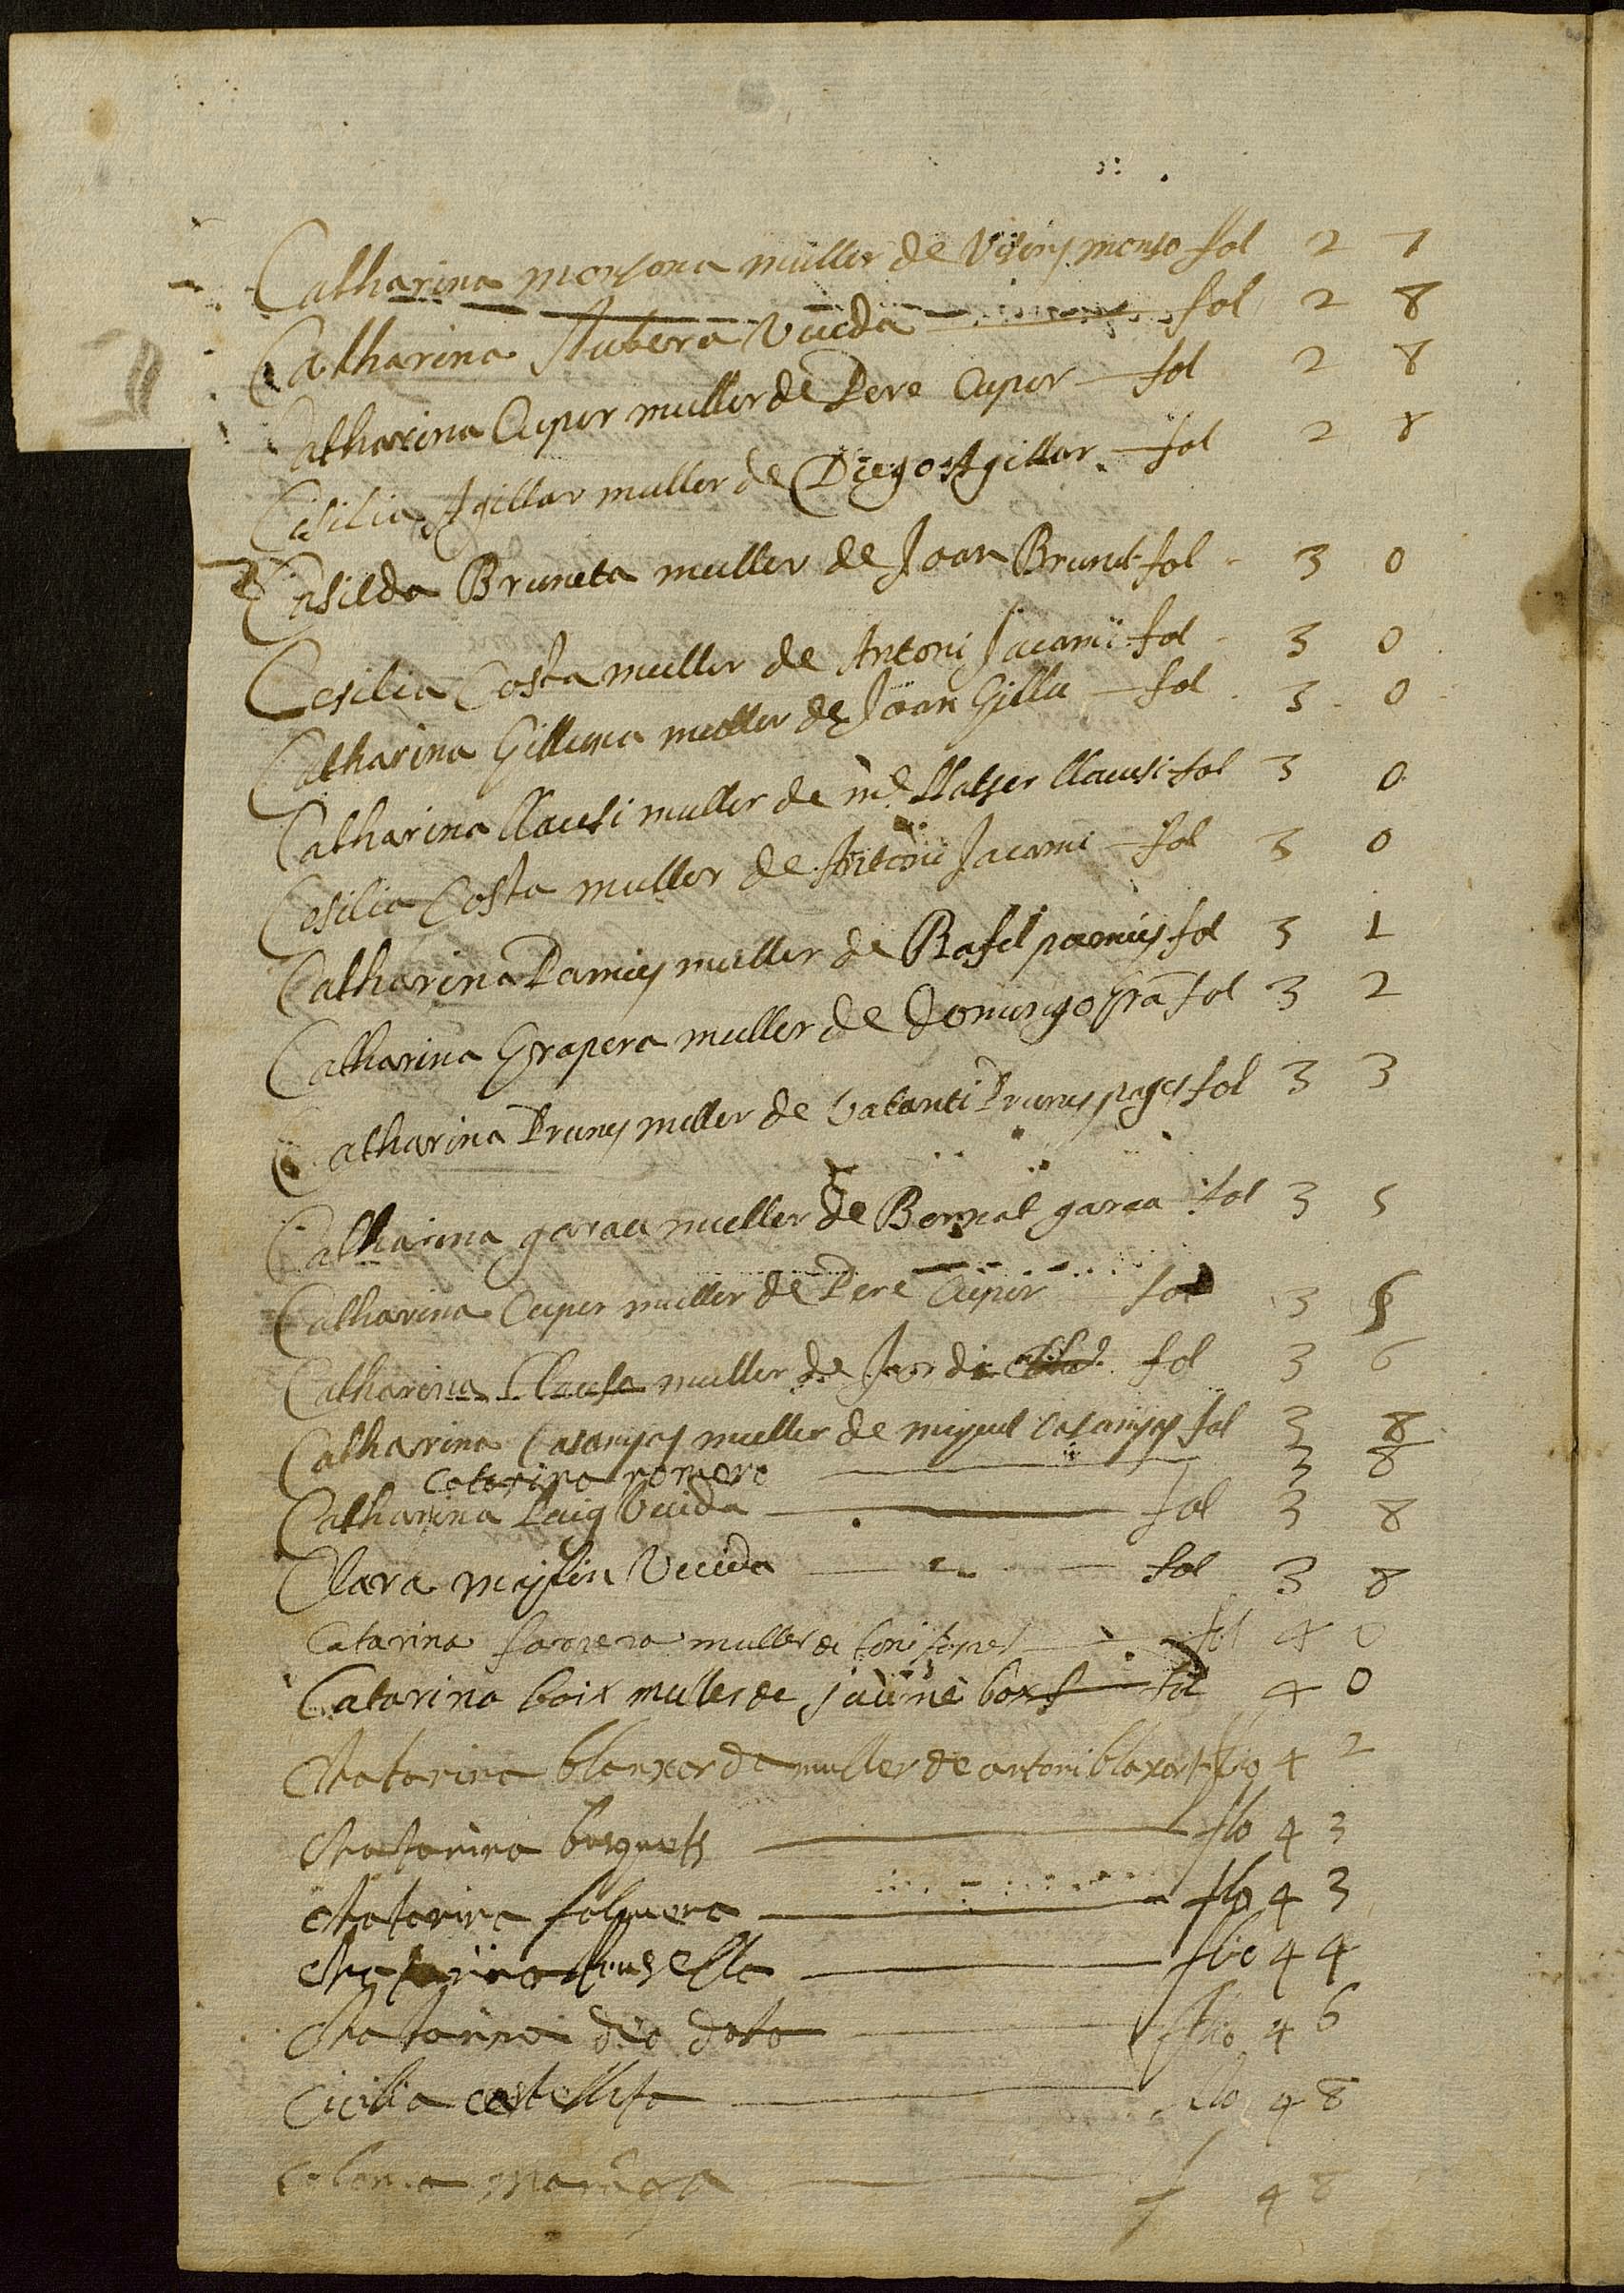 Catharina monsona muller de Visens monso fol 2 7
Catharina Rubera Viuda fol 2 8
Catharina Cuper muller de Pere Cuper fol 2 8
Cisilia Agillar muller de Diego Agillar fol 2 8
Casilda Bruneta muller de Joan Brunet fol 3 0
Cesilia Costa muller de Antoni Jacomi fol 3 0
Catharina Gilluna muller de Joan Gillu fol 3 0
Catharina Clausi muller de Clausi fol 3 0
Cesilia Costa muller de Antoni Jacomi fol 3 0
Catharina Damies muller de Rafel fol 3 1
Catharina Grapera muller de Domingo Gra fol 3 2
Catharina Prunes muller de Valanti Prunes pages fol 3 3
Catharina garau muller de Bernat garau fol 3 5
Catharina Cuper muller de Pere Cuper fol 3
Catharina Clausa muller de Jordi fol 3 6
Catharina Casanyas muller de miquel Casanyas fol 3 8
Catarina romero 3 8
Catharina Puig Viuda fol 3 8
Clara Viuda fol 3 8
Catarina farrera muller de toni ferrer fol 4 0
Catarina boix muller de jaume boix fol 4 0
Catarina blanxarda muller de antoni blaxart flio 4 2
Catarina busquets flo 4 3
Catarina folguera flo 4 3
Catarina flio 4 4
Catarina deo data flio 4 6
Cicilia castellita flo 4 8
Coloma f 4 8